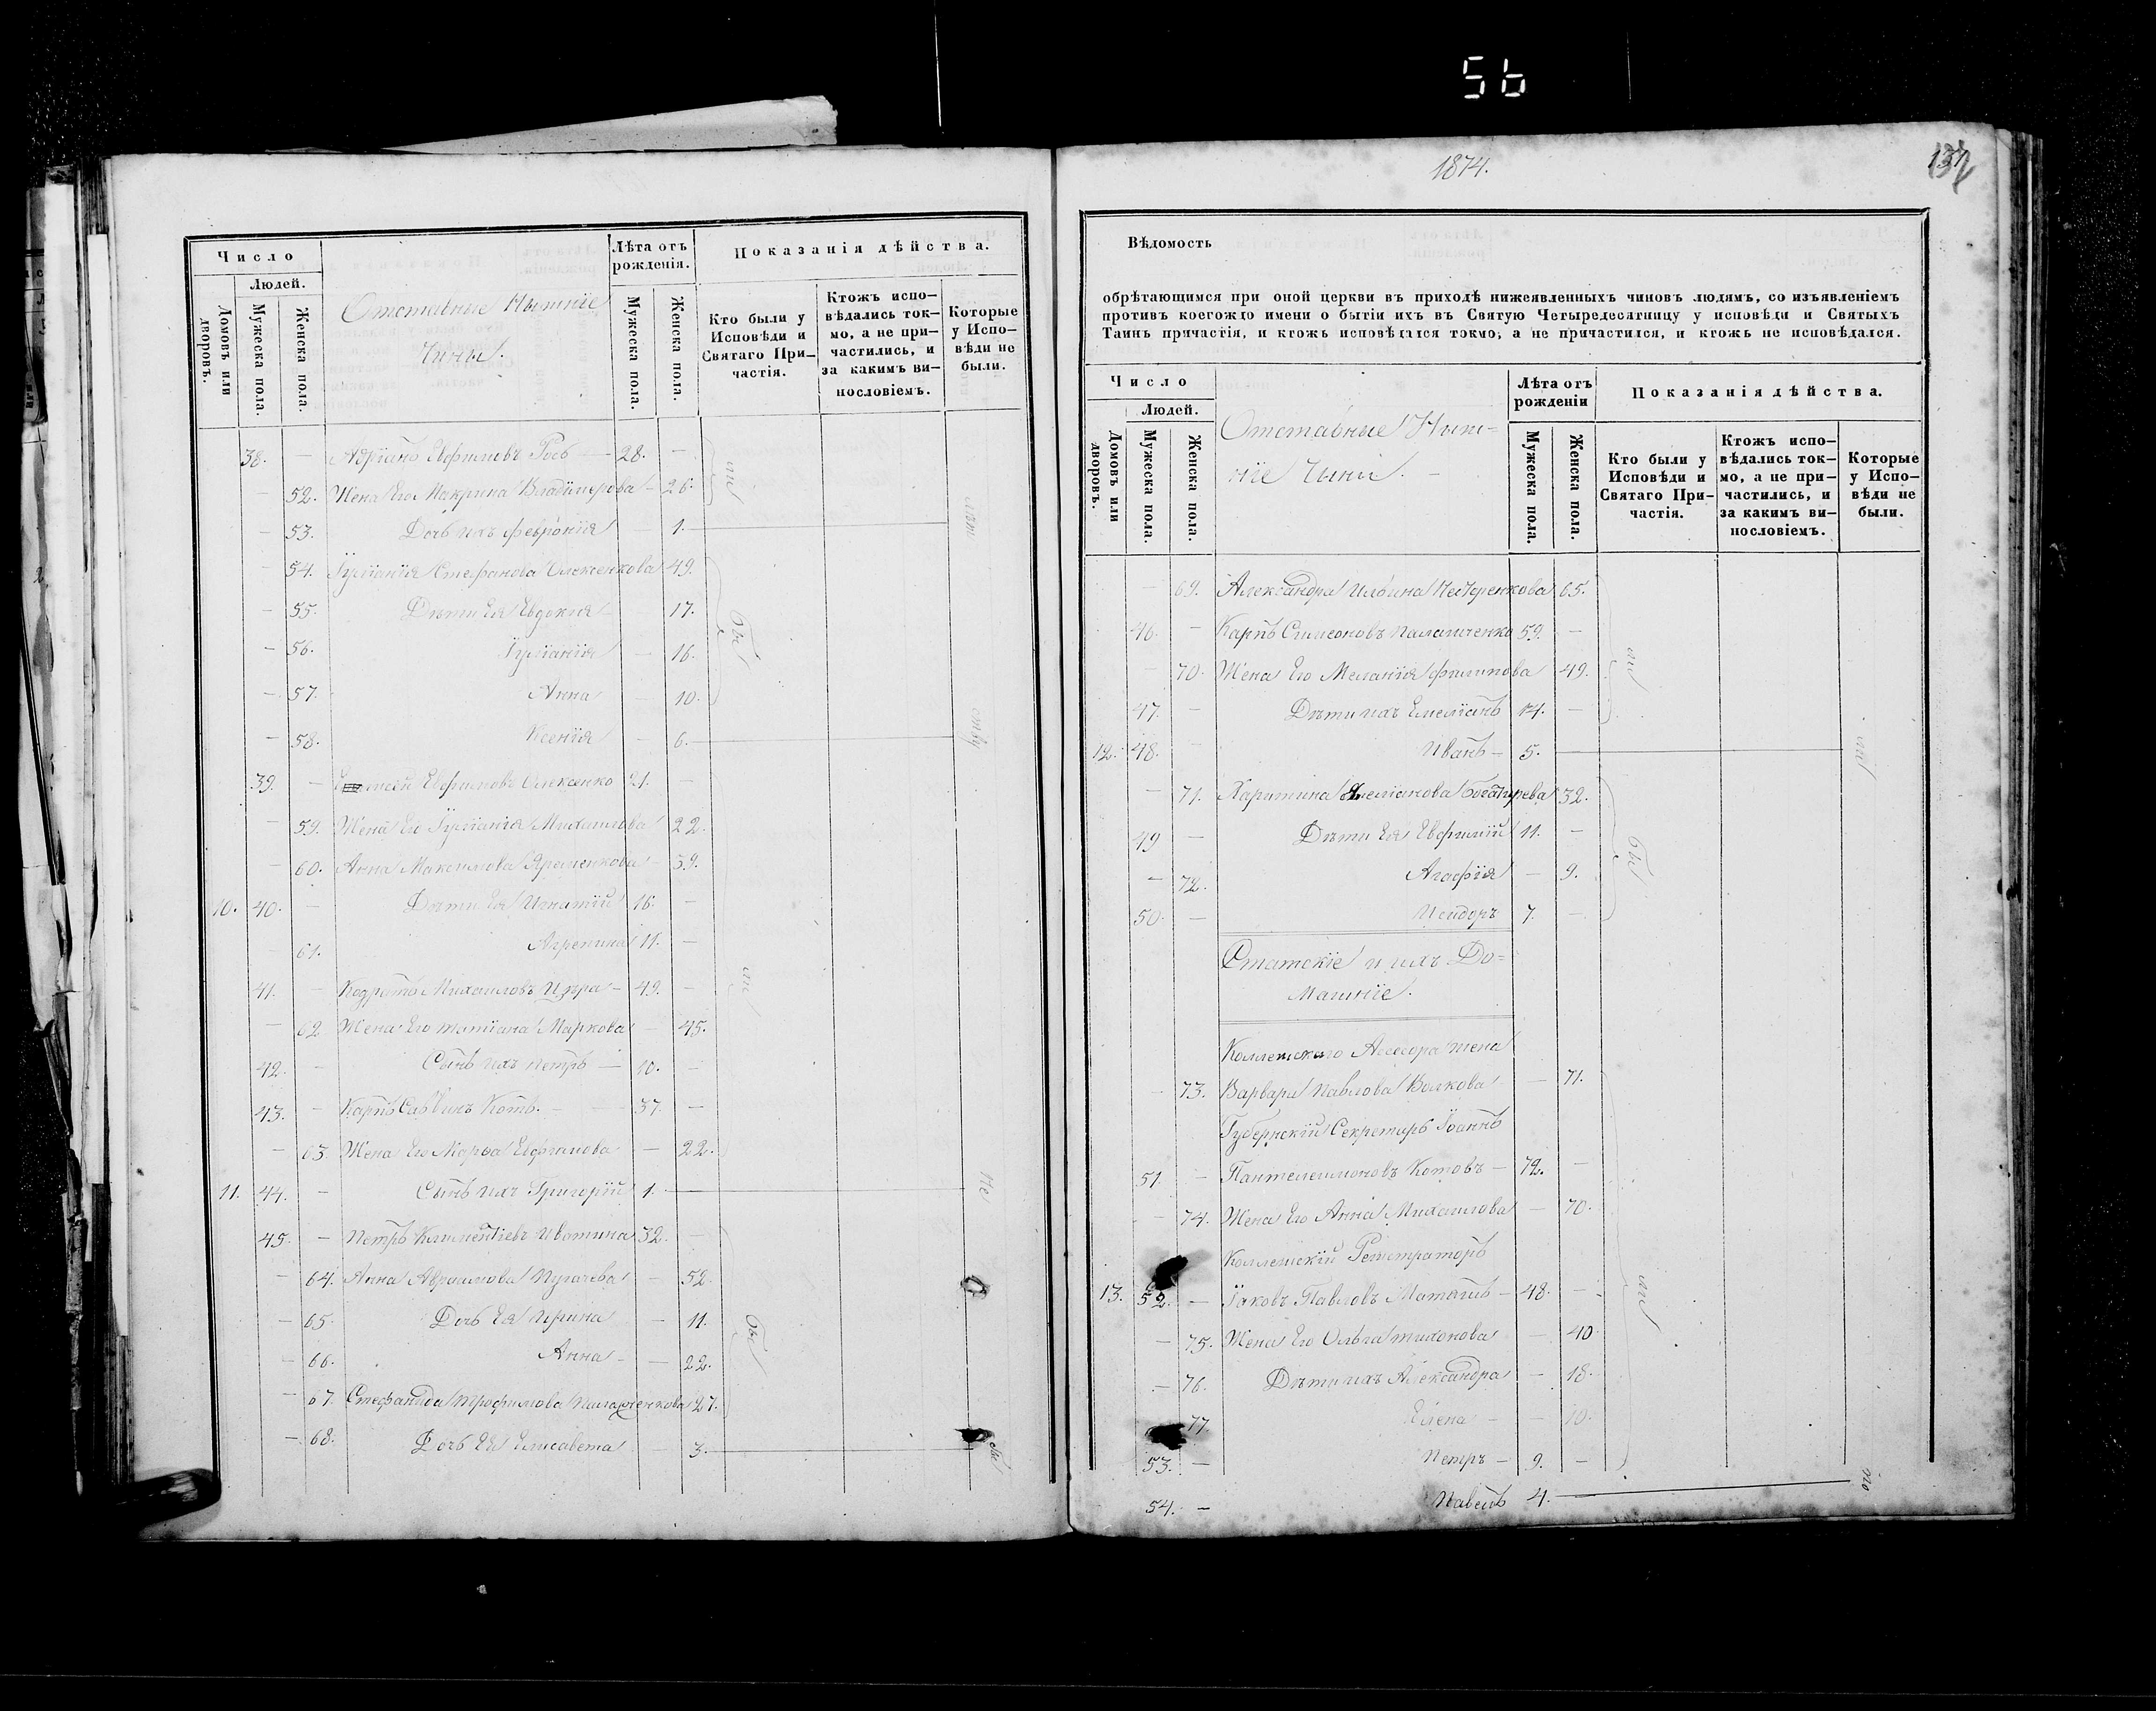 56
Число
Людей.
Домовъ или дворовъ.
Мужеска пола.
Женска пола.
Отставные Нытніе
Чины.
Лѣта отъ рожденія.
Мужеска пола.
Женска пола.
Показанія дѣйства.
Кто были у Исповѣди и Святаго При-частія.
Ктожъ испо-вѣдались ток-мо, а не при-частились, и за какимъ ви-нословіемъ.
Которые у Испо-вѣди не были.
38. — Адріанъ Евфимовъ — 28. —
— 52. Жена Его Макрина Владимерова — 26.
— 53. Дочь ихъ Февронія — 1.
— 54. Іуліанія Стефанова Олексенкова 49.
— 55. Дѣти Ея Евдокия — 17.
— 56. Іуліанія — 16.
— 57. Анна 10.
— 58. Ксенія — 6.
39. — Евфимовъ Олексенко 21. —
— 59. Жена Его Іуліанія Михаилова 22.
— 60. Анна Максимова Яременкова — 39.
10. 40. — Дѣти Ея Игнатій 16. —
61. Агрепина 11. —
41. — Кодратъ Михаиловъ — 49. —
— 62 Жена Его Татіана Маркова — 45.
42. — Сынъ ихъ Петръ — 10. —
43. — Карпъ Саввинъ Котъ. — 37. —
— 63. Жена Его Марѳа Евфимова — 22.
11. 44. — Сынъ ихъ Григорій 1.
45. — Петръ Климентіевъ Иватина 32. —
— 64. Анна Авраамова Пугачева — 52.
— 65. Дочь Ея Ирина — 11.
— 66. Анна — — 22.
— 67. Стефанида Трофимова Паламченкова 27.
— 68. Дочь Ея Елисавета — 3.
1874.
Вѣдомость
обрѣтающимся при оной церкви въ приходѣ нижеявленныхъ чиновъ людямъ, со изъявленіемъ
противъ коегождо имени о бытіи ихъ въ Святую Четыредесятницу у исповѣди и Святыхъ
Таинъ причастія, и ктожъ исповѣдался токмо, а не причастился, и ктожъ не исповѣдался.
Число
Людей.
Домовъ или дворовъ.
Мужеска пола.
Женска пола.
Отставные Ныт-
ніе Чины. —
Лѣта отъ рожденіи
Мужеска пола.
Женска пола.
Показанія дѣйства.
Кто были у Исповѣди и Святаго При-частія.
Ктожъ испо-вѣдались ток-мо, а не при-частились, и за какимъ ви-нословіемъ.
Которые у Испо-вѣди не были.
— 69. Александра Ильина Нестеренкова 65.
46. — Карпъ Симеоновъ Паламченко 59. —
— 70. Жена Его Меланія Филипова 49.
47. — Дѣти ихъ Емеліанъ 14. —
12. 48. — Иванъ — 5.
— 71. Харитина Емеліанова Богатырева 32.
49 — Дѣти Ея Евфимій 11. —
— 72. Агафія — 9.
50. — Исидоръ 7. —
Статскіе и ихъ До=
машніе.
Коллежскаго Асесора жена
— 73. Варвара Павлова Волкова — 71.
Губернскій Секретарь Іоаннъ
51. — Пантелеимоновъ Котовъ — 72. —
— 74. Жена Его Анна Михаилова — 70.
Коллежскій Регистраторъ
13. 52. — Іаковъ Павловъ — 48. —
— 75. Жена Его Ольга Тихонова — 40
— 76. Дѣти ихъ Александра — 18.
77. Елена — — 10.
53. — Петръ — 9. —
54. — Павелъ 4.